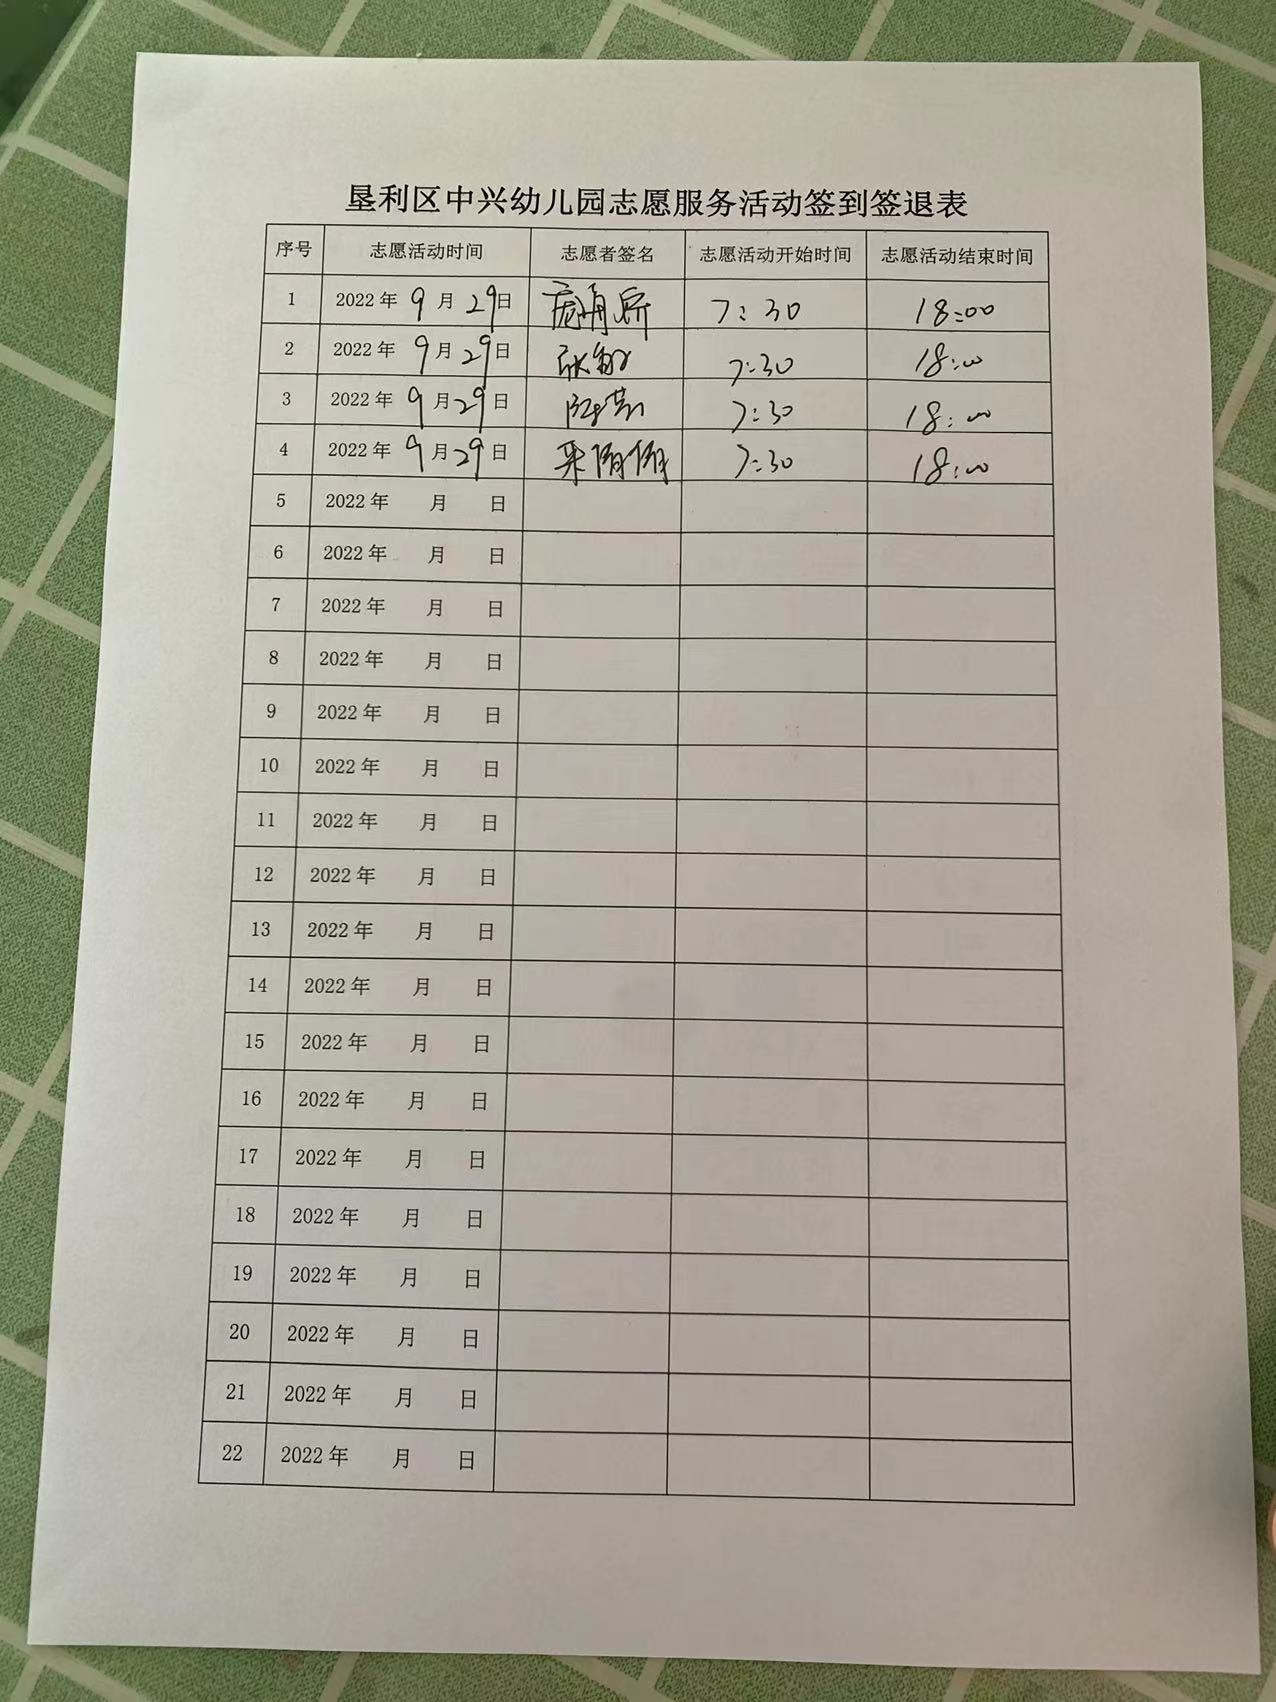 垦利区中兴幼儿园志愿服务活动签到签退表
序号 志愿活动时间 志愿者签名 志愿活动开始时间 志愿活动结束时间
1 2022年 9月 29日 7:30 18:00
2 2022年 9月 29日 7:30 18:00
3 2022年 9月 29日 7:30 18:00
4 2022年 9月 29日 7:30 18:00
5 2022年 月 日
6 2022年 月 日
7 2022年 月 日
8 2022年 月 日
9 2022年 月 日
10 2022年 月 日
11 2022年 月 日
12 2022年 月 日
13 2022年 月 日
14 2022年 月 日
15 2022年 月 日
16 2022年 月 日
17 2022年 月 日
18 2022年 月 日
19 2022年 月 日
20 2022年 月 日
21 2022年 月 日
22 2022年 月 日